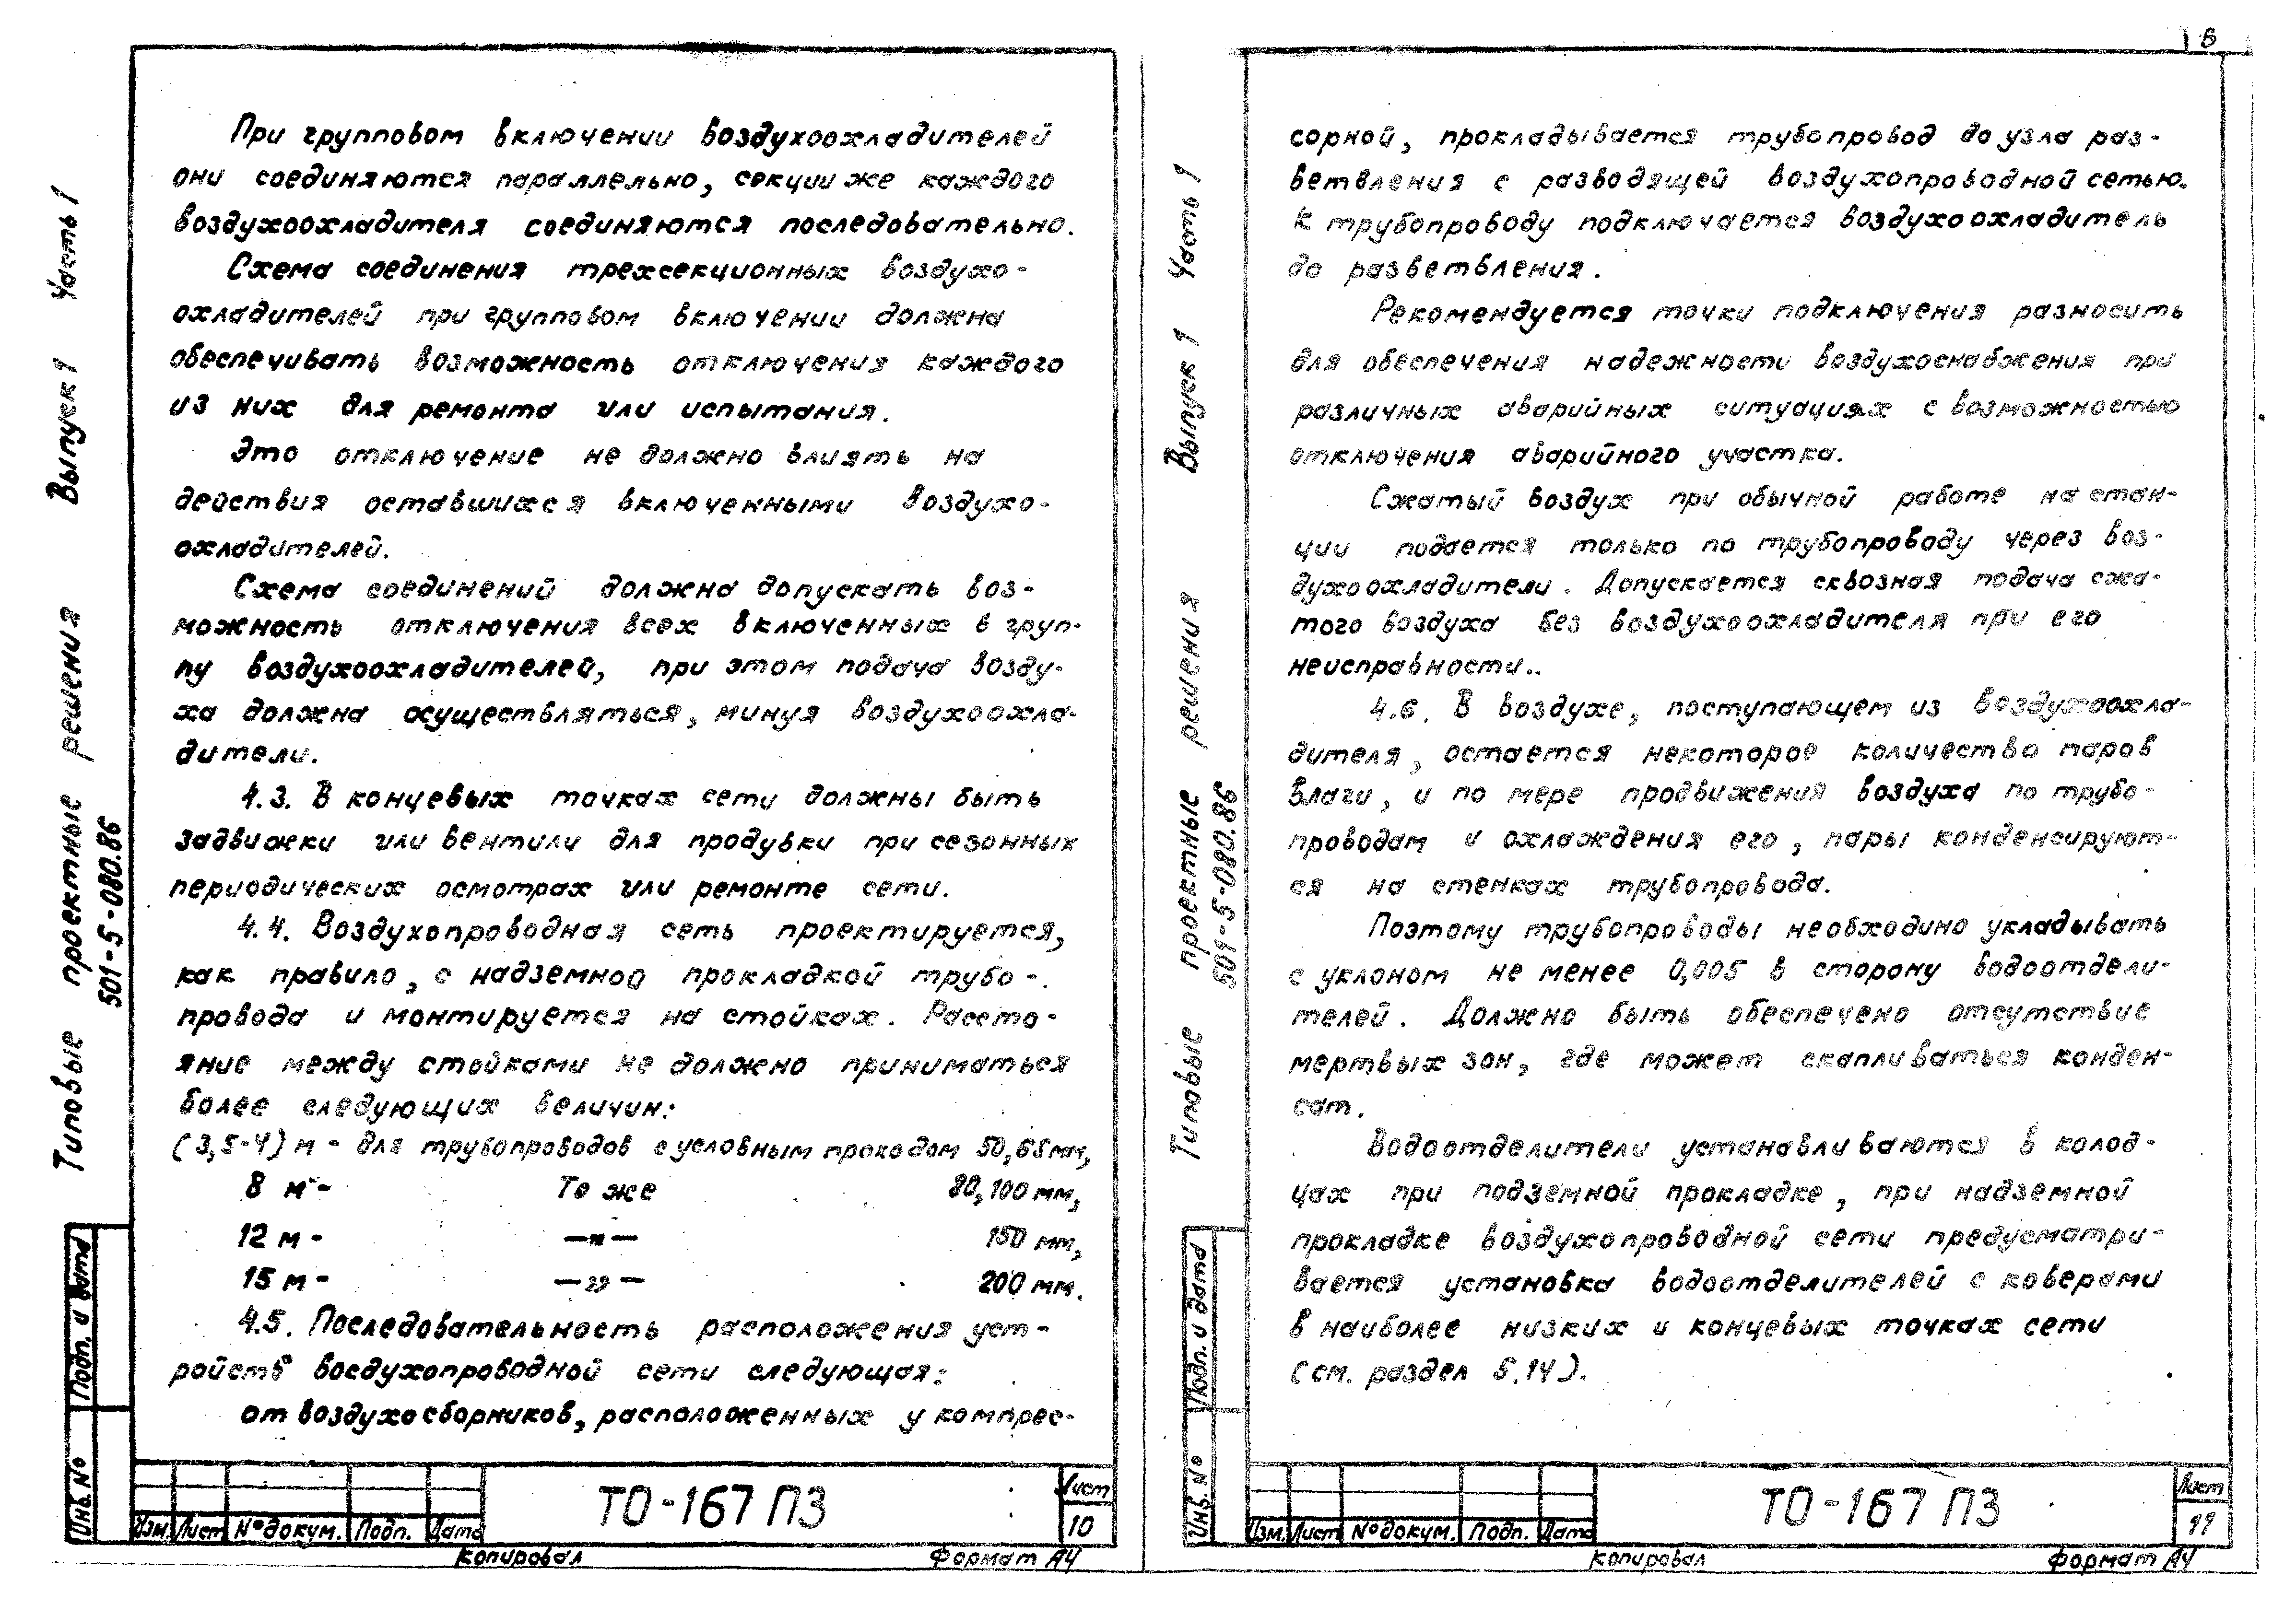 При групповом включении воздухоохладителей
они соединяются параллельно, секции же каждого
воздухоохладителя соединяются последовательно.
Схема соединения трехсекционных воздухо-
охладителей при групповом включении должна
обеспечивать возможность отключения каждого
из них для ремонта или испытания.
Это отключение не должно влиять на
действия оставшихся включенными воздухо-
охладителей.
Схема соединений должна допускать воз-
можность отключения всех включенных в груп-
пу воздухоохладителей, при этом подача возду-
ха должна осуществляться, минуя воздухоохла-
дители.
4.3. В концевых точках сети должны быть
задвижки или вентили для продувки при сезонных
периодических осмотрах или ремонте сети.
4.4. Воздухопроводная сеть проектируется,
как правило, с надземной прокладкой трубо-
провода и монтируется на стойках. Рассто-
яние между стойками не должно приниматься
более следующих величин:
(3,5-4) м - для трубопроводов с условным проходом 50,65 мм,
8 м - То же 80, 100 мм,
12 м - —"— 150 мм,
15 м - —"— 200 мм.
4.5. Последовательность расположения уст-
ройств воедухопроводной сети следующая:
от воздухосборников, расположенных у компрес-
Типовые проектные решения Выпуск 1 Часть 1
501-5-080.86
Инв. № Подп. и дата
Изм. Лист № докум. Подп. Дата
ТО-167 ПЗ
Лист
10
Копировал Формат А4
6
сорной, прокладывается трубопровод до узла раз-
ветвления с разводящей воздухопроводной сетью.
К трубопроводу подключается воздухоохладитель
до разветвления.
Рекомендуется точки подключения разносить
для обеспечения надежности воздухоснабжения при
различных аварийных ситуациях с возможностью
отключения аварийного участка.
Сжатый воздух при обычной работе на стан-
ции подается только по трубопроводу через воз-
духоохладители. Допускается сквозная подача сжа-
того воздуха без воздухоохладителя при его
неисправности..
4.6. В воздухе, поступающем из воздухоохла-
дителя, остается некоторое количество паров
влаги, и по мере продвижения воздуха по трубо-
проводам и охлаждения его, пары конденсируют-
ся на стенках трубопровода.
Поэтому трубопроводы необходимо укладывать
с уклоном не менее 0,005 в сторону водоотдели-
телей. Должно быть обеспечено отсутствие
мертвых зон, где может скапливаться конден-
сат.
Водоотделители устанавливаются в колод-
цах при подземной прокладке, при надземной
прокладке воздухопроводной сети предусматри-
вается установка водоотделителей с коверами
в наиболее низких и концевых точках сети
(см. раздел 5.14).
Типовые проектные решения Выпуск 1 Часть 1
501-5-080.86
Инв. № Подп. и дата
Изм. Лист № докум. Подп. Дата
ТО-167 ПЗ
Лист
11
Копировал Формат А4